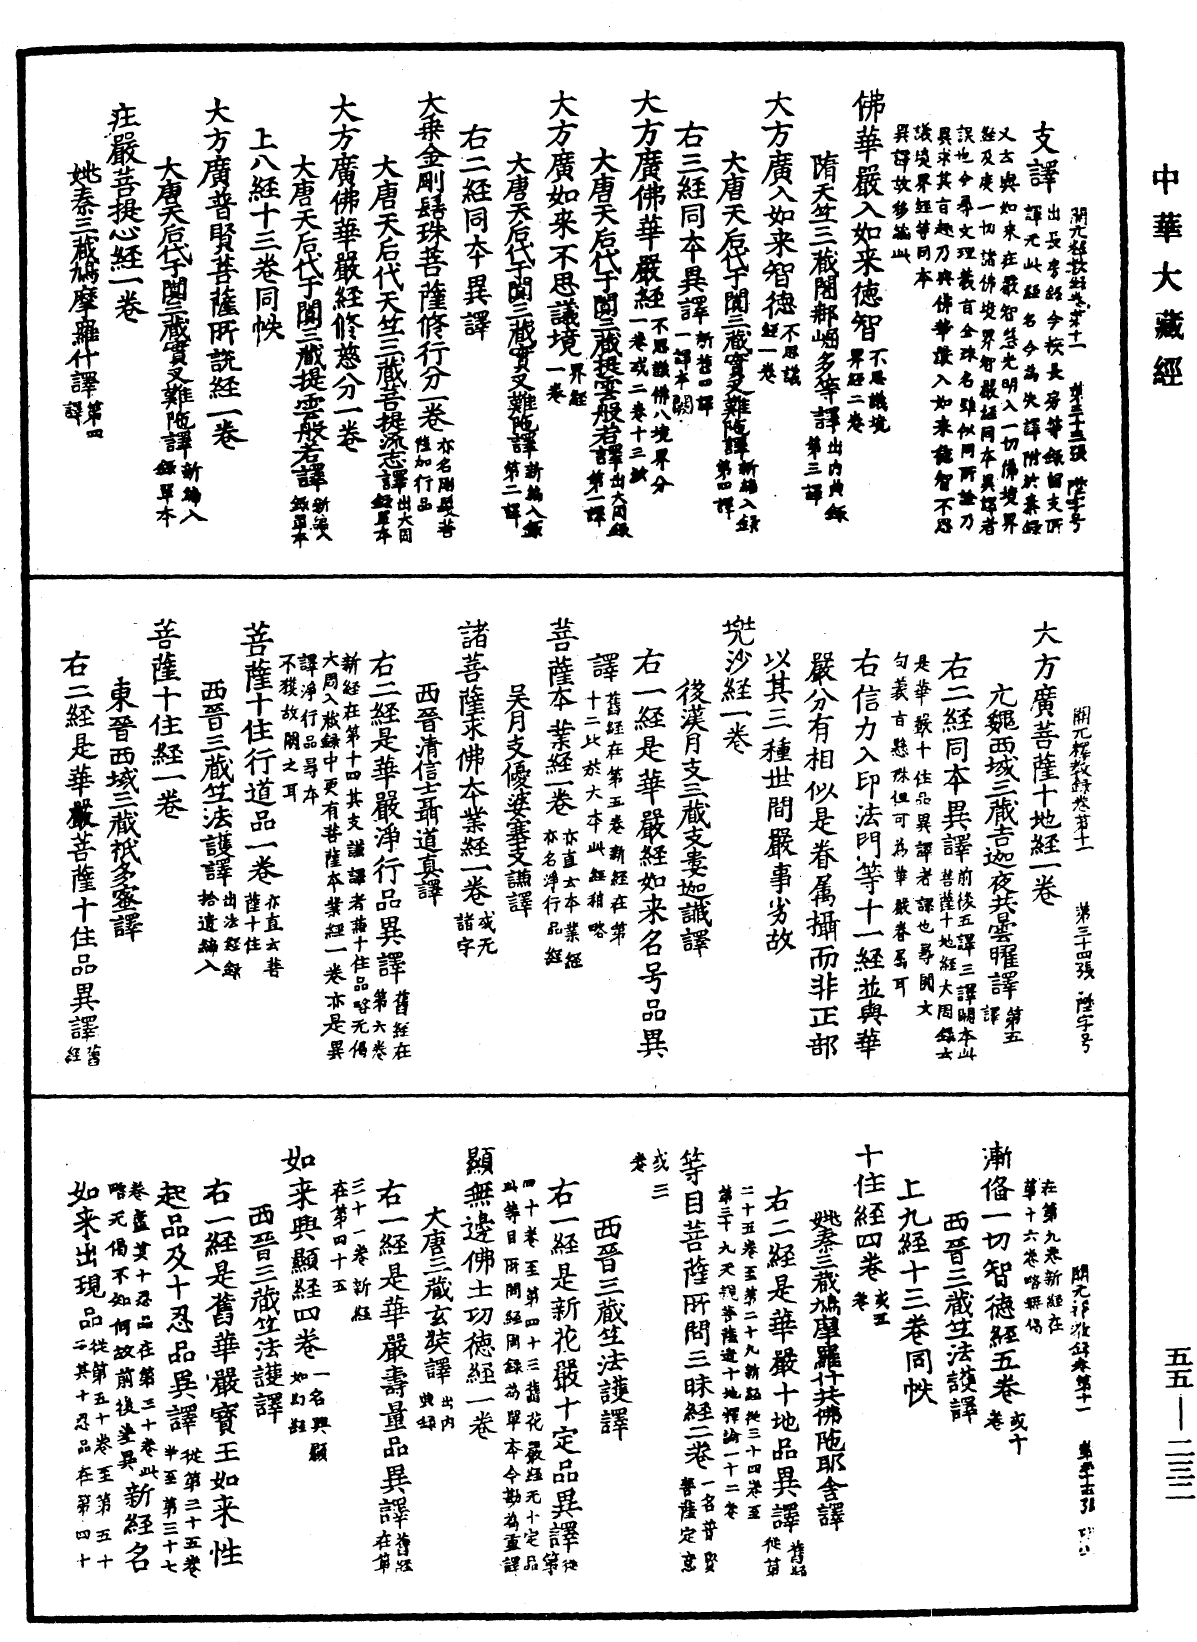 中華大藏經
開元釋教錄卷第十一　第三十三張　陞字号
支譯出長房錄今校長房等錄留支所
譯无此經名今為失譯附於秦錄
又云與如來莊嚴智慧光明入一切佛境界
經及度一切諸佛境界智嚴經同本異譯者
誤也今尋文理義旨全殊名雖似同所詮乃
異求其旨趣乃與佛華嚴入如來德智不思
議境界經等同本
異譯故移編此
佛華嚴入如来德智不思議境界經二卷
隋天竺三藏闍那崛多等譯出內典錄第三譯
大方廣入如来智德不思議經一卷
大唐天后代于闐三藏實叉難陁譯新編入錄第四譯
右三經同本異譯新舊四譯一譯本闕
大方廣佛華嚴經不思議佛境界分
一卷或二卷十三紙
大唐天后代于闐三藏提雲般若譯出大周錄第一譯
大方廣如来不思議境界經一卷
大唐天后代于闐三藏實叉難陁譯新編入錄第二譯
右二經同本異譯
大乗金剛髻珠菩薩修行分一卷亦名剛髻菩薩加行品
大唐天后代天竺三藏菩提流志譯出大周錄單本
大方廣佛華嚴經修慈分一卷
大唐天后代于闐三藏提雲般若譯新編入錄單本
上八經十三卷同帙
大方廣普賢菩薩所說經一卷
大唐天后代于闐三藏實叉難陁譯新編入錄單本
莊嚴菩提心經一卷
姚秦三藏鳩摩羅什譯第四譯
開元釋教錄卷第十一　第三十四張　陞字号
大方廣菩薩十地經一卷
元魏西域三藏吉迦夜共曇曜譯第五譯
右二經同本異譯前後五譯三譯闕本此菩薩十地經大周錄云
是華嚴十住品異譯者誤也尋閱文
句義旨懸殊但可為華嚴眷屬耳
右信力入印法門等十一經並與華
嚴分有相似是眷属攝而非正部
以其三種世間嚴事劣故
兜沙經一卷
後漢月支三藏支婁迦讖譯
右一經是華嚴經如来名号品異
譯舊經在第五卷新經在第十二此於大本此經稍略
菩薩本業經一卷亦直云本業經亦名淨行品經
吳月支優婆塞支謙譯
諸菩薩求佛本業經一卷或无諸字
西晉清信士聶道真譯
右二經是華嚴淨行品異譯舊經在第六卷
新經在第十四其支謙譯者兼十住品略无偈
大周入藏錄中更有菩薩本業經一卷亦是異
譯淨行品尋本
不獲故闕之耳
菩薩十住行道品一卷亦直云菩薩十住
西晉三藏竺法護譯出法經錄拾遺編入
菩薩十住經一卷
東晉西域三藏祇多蜜譯
右二經是華嚴菩薩十住品異譯舊經
開元釋教錄卷第十一
在第九卷新經在
第十六卷略無偈
漸俻一切智德經五卷或十卷
西晉三藏竺法護譯
上九經十三卷同帙
十住經四卷或五卷
姚秦三藏鳩摩羅什共佛陁耶舍譯
右二經是華嚴十地品異譯舊經從第
二十五卷至第二十九新經從三十四卷至
第三十九天親菩薩造十地釋論一十二卷
等目菩薩所問三昧經二卷一名普賢菩薩定意
或三卷
西晉三藏竺法護譯
右一經是新花嚴十定品異譯從第
四十卷至第四十三舊花嚴經无十定品
此等目所問經周錄為單本今勘為重譯
顯無邊佛土功德經一卷
大唐三藏玄奘譯出內典錄
右一經是華嚴壽量品異譯舊經在第
三十一卷新經
在第四十五
如来興顯經四卷一名興顯如幻經
西晉三藏竺法護譯
右一經是舊華嚴寶王如来性
起品及十忍品異譯從第三十五卷半至第三十七
卷盡其十忍品在第三十卷此
略无偈不知何故前後差異
新經名
如来出現品從第五十卷至第五十二其十忍品在第四十
五五—二三二